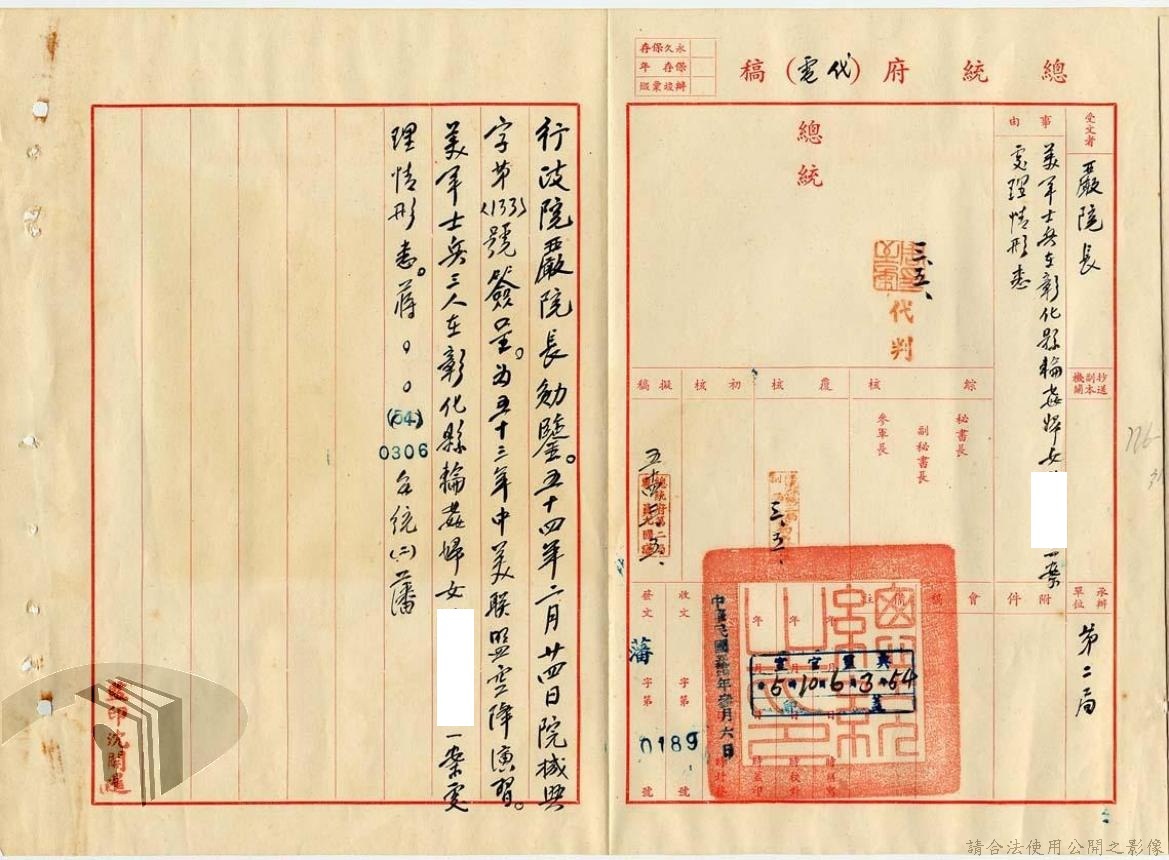 總統府(代電)稿
永久保存
保存 年
辦竣彙繳
受文者
嚴院長
抄送副本機關
承辦單位
第二局
事由
美軍士兵在彰化縣輪姦婦女
一案
處理情形悉
附件
總統
三、五、
代判
綜核
覆核
初核
擬稿
秘書長
副秘書長
參軍長
三、五、
會
收文 字第 號
發文 藩 字第 0189 號
中華民國
年 月六日
54 3 6 10 5
行政院嚴院長勛鑒。五十四年二月廿四日院機興
字第(133)號簽呈。為五十三年中美聯盟空降演習。
美軍士兵三人在彰化縣輪姦婦女
一案處
理情形悉。蔣○○(54)
0306台統(二)藩
監印沈開運
請合法使用公開之影像